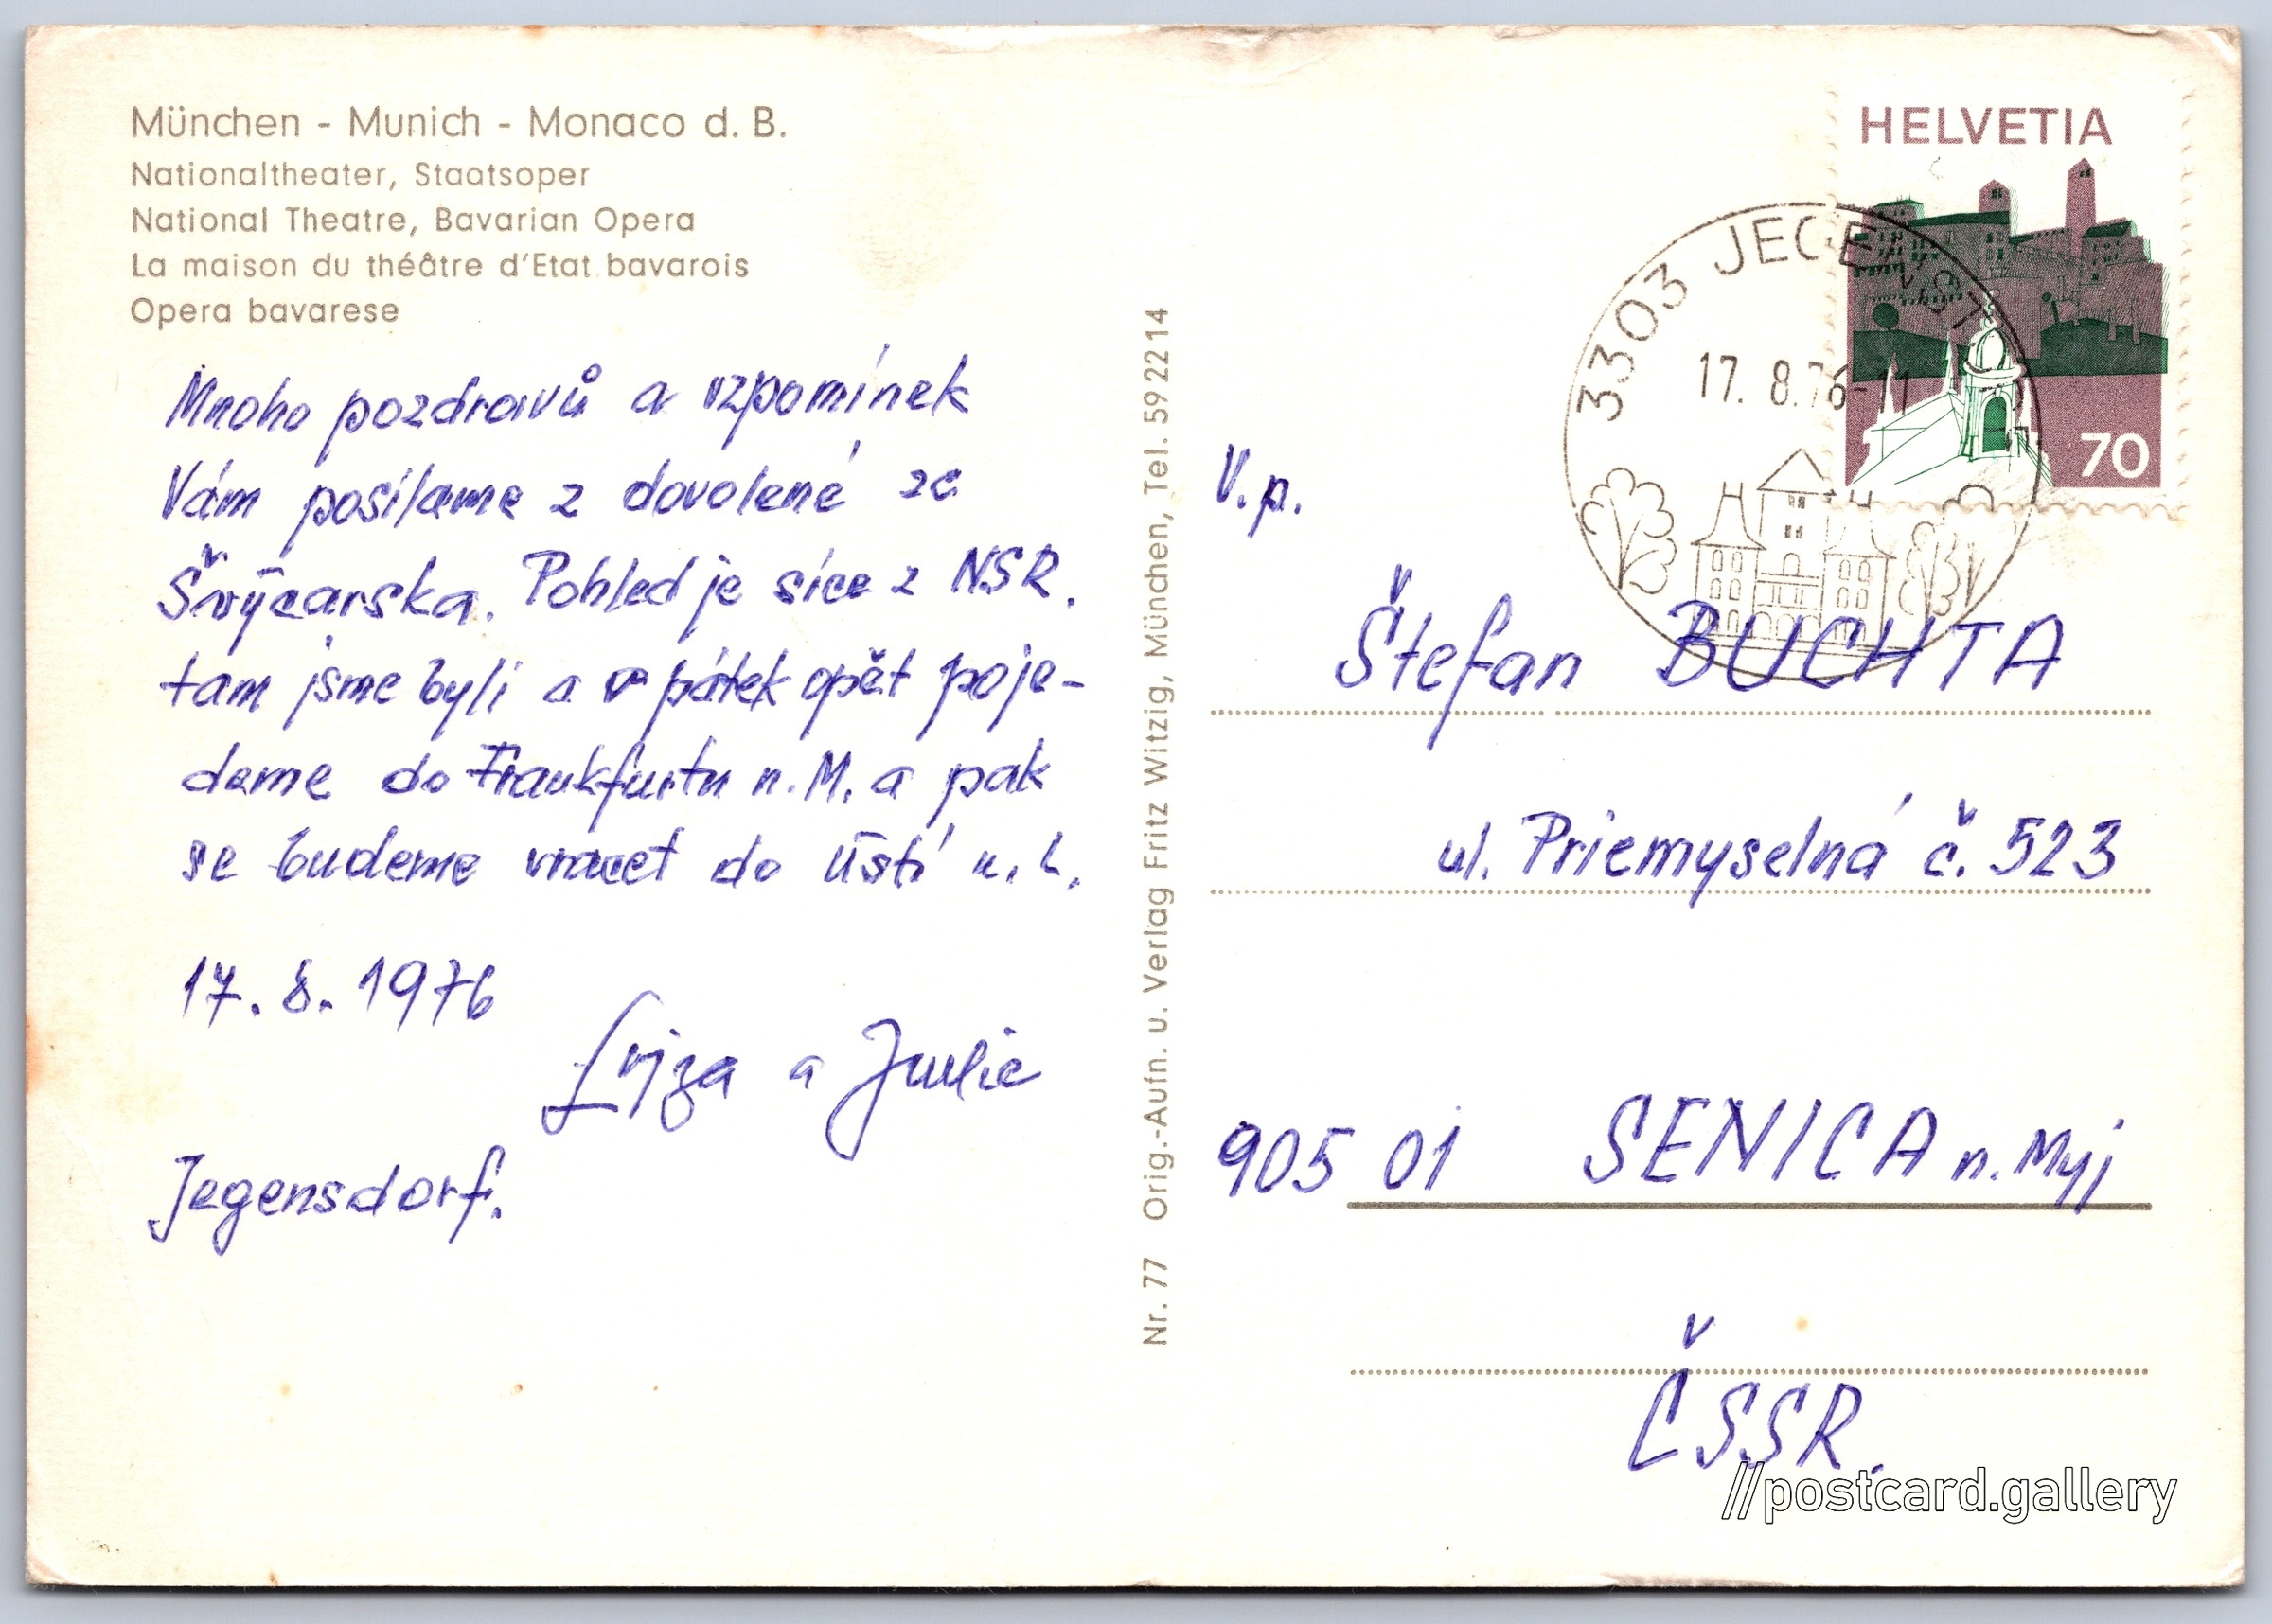 München - Munich - Monaco d. B.
Nationaltheater, Staatsoper
National Theatre, Bavarian Opera
La maison du théâtre d'Etat bavarois
Opera bavarese
Mnoho pozdravů a vzpomínek
Vám posílame z dovolené ze
Švýcarska. Pohled je sice z NSR.
tam jsme byli a v pátek opět poje-
deme do Frankfurtu n. M. a pak
se budeme vracet do Ústí n. L.
17. 8. 1976
Lojza a Julie
Jegensdorf.
Nr. 77 Orig.-Aufn. u. Verlag Fritz Witzig, München, Tel. 592214
HELVETIA
70
3303 JEGENST
17. 8. 76-11
V. p.
Štefan BUCHTA
ul. Priemyselná č. 523
905 01 SENICA n. Myj
ČSSR.
//postcard.gallery